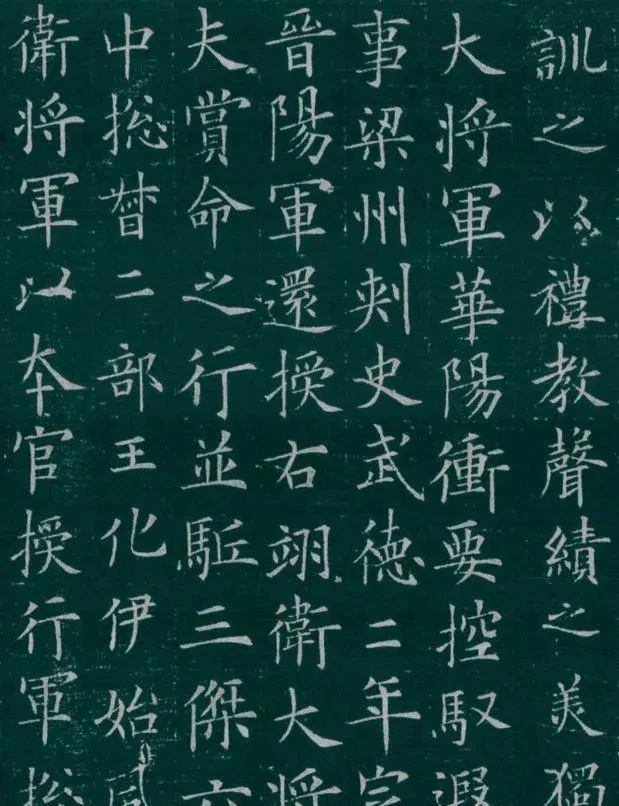 訓之以禮教聲績之美獨
大將軍華陽衝要控馭遐
事梁州刾史武徳二年宗
晉陽軍還授右翊衛大將
夫賞命之行並駈三傑六
中捴督二部王化伊始風
衛将軍以夲官授行軍捴